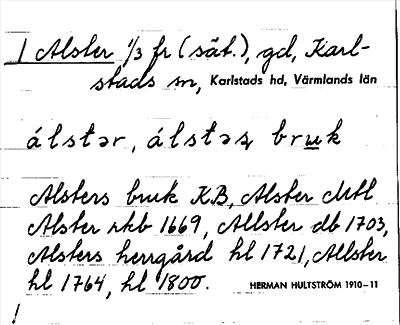 1 Alster 1/3 fr (sät.), gd, Karl-
stads sn, Karlstads hd, Värmlands län
álstər, álstəʂ bruk
Alsters bruk KB, Alster Mtl
Alster skb 1669, Allster db 1703,
Alsters herrgård hl 1721, Allster
hl 1764, hl 1800.
HERMAN HULTSTRÖM 1910–11